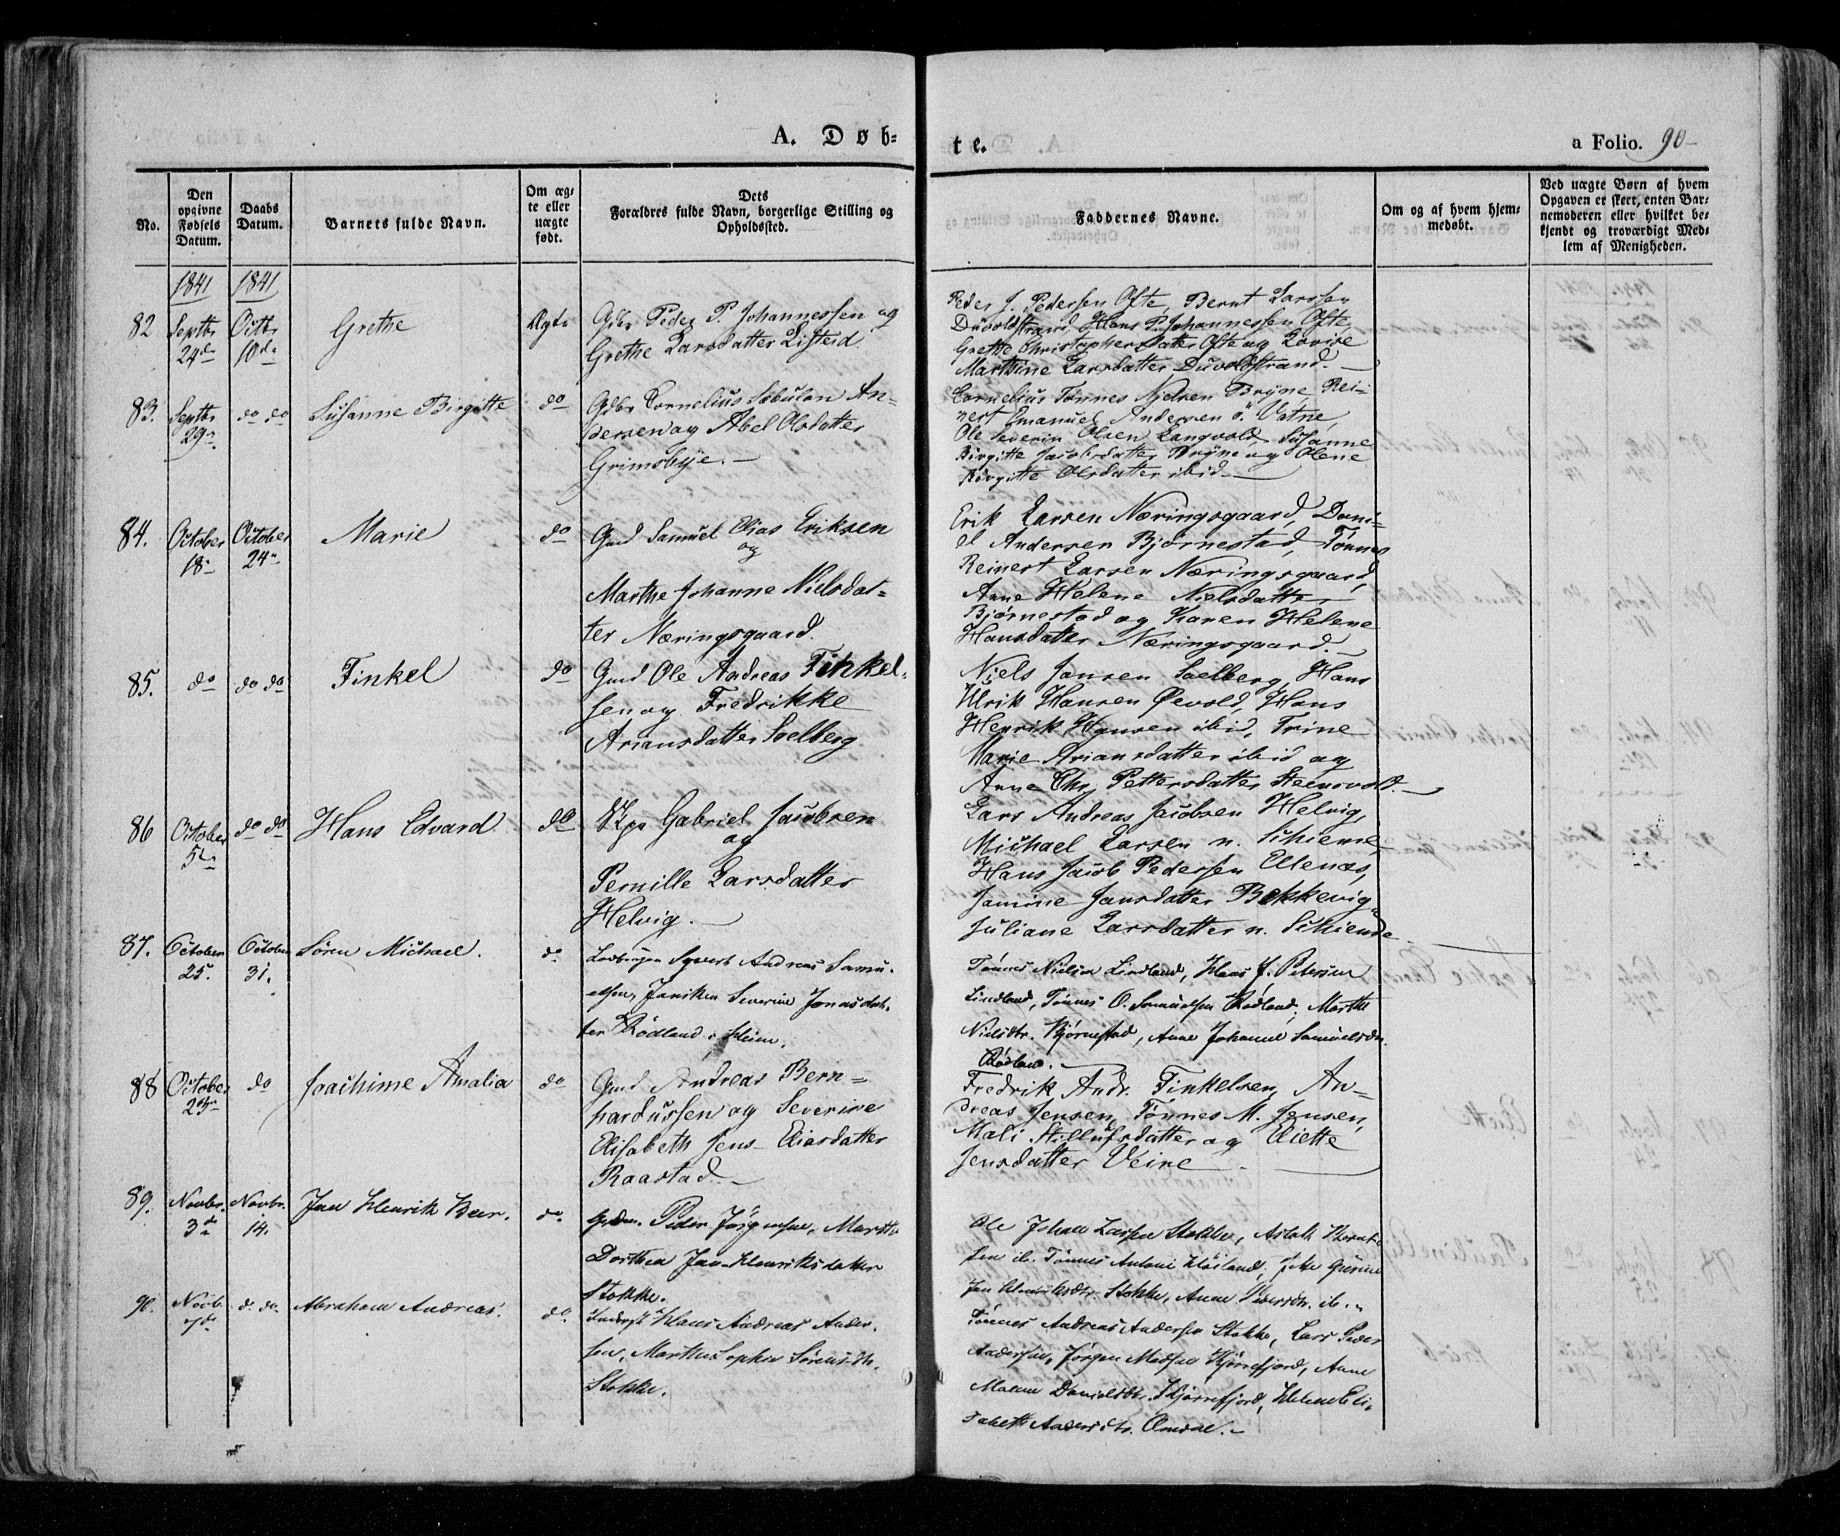 A. Døb=
te.
a Folio. 90
No.
Den opgivne Fødsels Datum.
Daabs Datum.
Barnets fulde Navn.
Om æg= te eller uægte født.
Dets Forældres fulde Navn, borgerlige Stilling og Opholdssted.
Faddernes Navne.
Om og af hvem hjem= medøbt.
Ved uægte Børn af hvem Opgaven er skeet, enten Bar= nemoderen eller hvilket be= kjendt og troværdigt Med= lem af Menigheden.
1841 1841
82 Septbr 24de Octbr 10de
Grethe
Ægte
Gdbr Peder P. Johannessen og
Grethe Larsdatter
Peder J. Pedersen Ofte, Bernt Larssen
Duvoldstrand, Hans P. Johannessen Ofte,
Grethe Christophersdatter Ofte og Lovise
Marthine Larsdatter Duvoldstrand.
83. Septbr 29de do do
Susanne Birgitte
do
Gdbr Cornelius Sebulon An=
dersen og Abel Olsdatter
Grimsbye.
Cornelius Tønnes Nielsen Bryne, Rei=
nert Emanuel Andersen ö. Vatne,
Ole Severin Olsen Langvold, Susanne
Birgitte Jacobsdatter Bryne og Olene
Birgitte Olsdatter ibid
84. October 18de October 24de
Marie
do
Gmd Samuel Elias Eriksen
og
Marthe Johanne Nielsdat=
ter Næringsgaard.
Erik Larsen Næringsgaard, Dani=
el Andersen Bjørnestad, Tønnes
Reinert Larsen Næringsgaard,
Anne Helene Nielsdatter
Bjørnestad og Karen Helene
Hansdatter Næringsgaard.
85. do do do
Finkel
do
Gmd Ole Andreas Finkel=
sen og Fredrikke
Ariansdatter Soelberg
Niels Jansen Soelberg, Hans
Ulrik Hansen Øevold, Hans
Henrik Hansen ibid, Trine
Marie Ariansdatter ibid og
Anne Chr. Pettersdatter Steensvold.
86 October 5te do do
Hans Edvard
do
Gabriel Jacobsen
og
Pernille Larsdatter
Helvig.
Lars Andreas Jacobsen Helvig,
Michael Larsen n. Schiende,
Hans Jacob Pedersen Ellenæs,
Jamine Jansdatter Bekkevig,
Juliane Larsdatter n. Schiende.
87. October 25. October 31.
Søren Michael.
do
Syvert Andreas Samu=
elsen, Janikke Severine Jonasdat=
ter Rødland i Heim.
Tønnes Nielsen Lindland, Hans J. Petersen
Lindland, Tønnes O. Samuelsen Rødland, Marthe
Nielsdtr. Bjørnestad, Anne Johanne Samuelsdtr.
Rødland.
88 October do
Joachime Amalia
do
Gmd Andreas Bern=
hardussen og Severine
Elisabeth Jens Eliasdatter
Raastad
Fredrik Andr. Finkelsen, An=
dreas Jensen, Tønnes M. Jensen,
Mali Stillufsdatter og Eliette
Jensdatter Veire
89. Novbr. 3de Novbr. 14.
Jan Henrik Beer.
do.
Peder Jørgensen, Marthe
Dorthea Jan Henriksdatter
Stokke.
Ole Johan Larsen Stokke, Aslak
sen ib. Tønnes Antoni
Jan Henriksdtr. Stokke, Anne Pedersdtr. ib.
90. Novb. 7de d. do.
Abraham Andreas.
do
Hans Andreas Ander=
sen, Marthe Sophie Sørensdtr.
Stokke.
Tønnes Andreas Andersen Stokke, Lars Peder
Andersen, Jørgen Madsen Kjørrefjord, Anne
Malene Danielsdtr. Kjørrefjord, Helene Eli=
sabeth Andersdtr. Omdal.